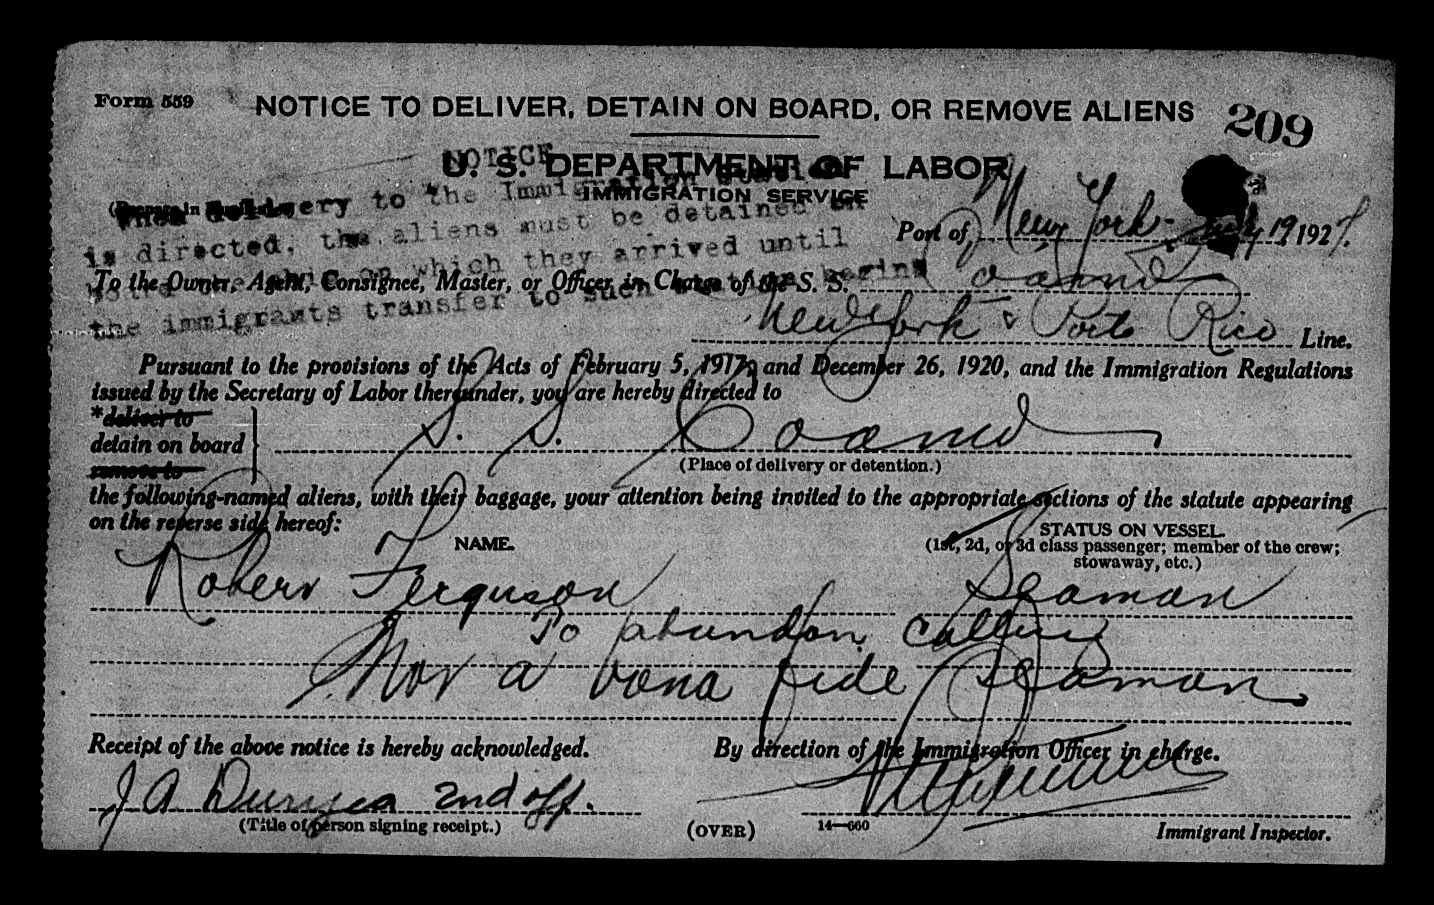 Form 559
NOTICE TO DELIVER, DETAIN ON BOARD, OR REMOVE ALIENS
209
U. S. DEPARTMENT OF LABOR
IMMIGRATION SERVICE
NOTICE
delivery to the Immigration
is directed, the aliens must be detained on
which they arrived until
the immigrants transfer to such begins
Port of New York - July 19, 1927.
To the Owner, Agent, Consignee, Master, or Officer in Charge of the S. S. Coamo
New York & Porto Rico Line.
Pursuant to the provisions of the Acts of February 5, 1917, and December 26, 1920, and the Immigration Regulations
issued by the Secretary of Labor thereunder, you are hereby directed to
*deliver to
detain on board
remove to
S. S. Coamo
(Place of delivery or detention.)
the following-named aliens, with their baggage, your attention being invited to the appropriate sections of the statute appearing
on the reverse side hereof:
NAME.
STATUS ON VESSEL.
(1st, 2d, or 3d class passenger; member of the crew;
stowaway, etc.)
Robert Ferguson Seaman
To abandon calling
Not a bona fide Seaman
Receipt of the above notice is hereby acknowledged.
By direction of the Immigration Officer in charge.
J A Duryea 2nd off.
(Title of person signing receipt.)
(OVER)
14—660
Immigrant Inspector.